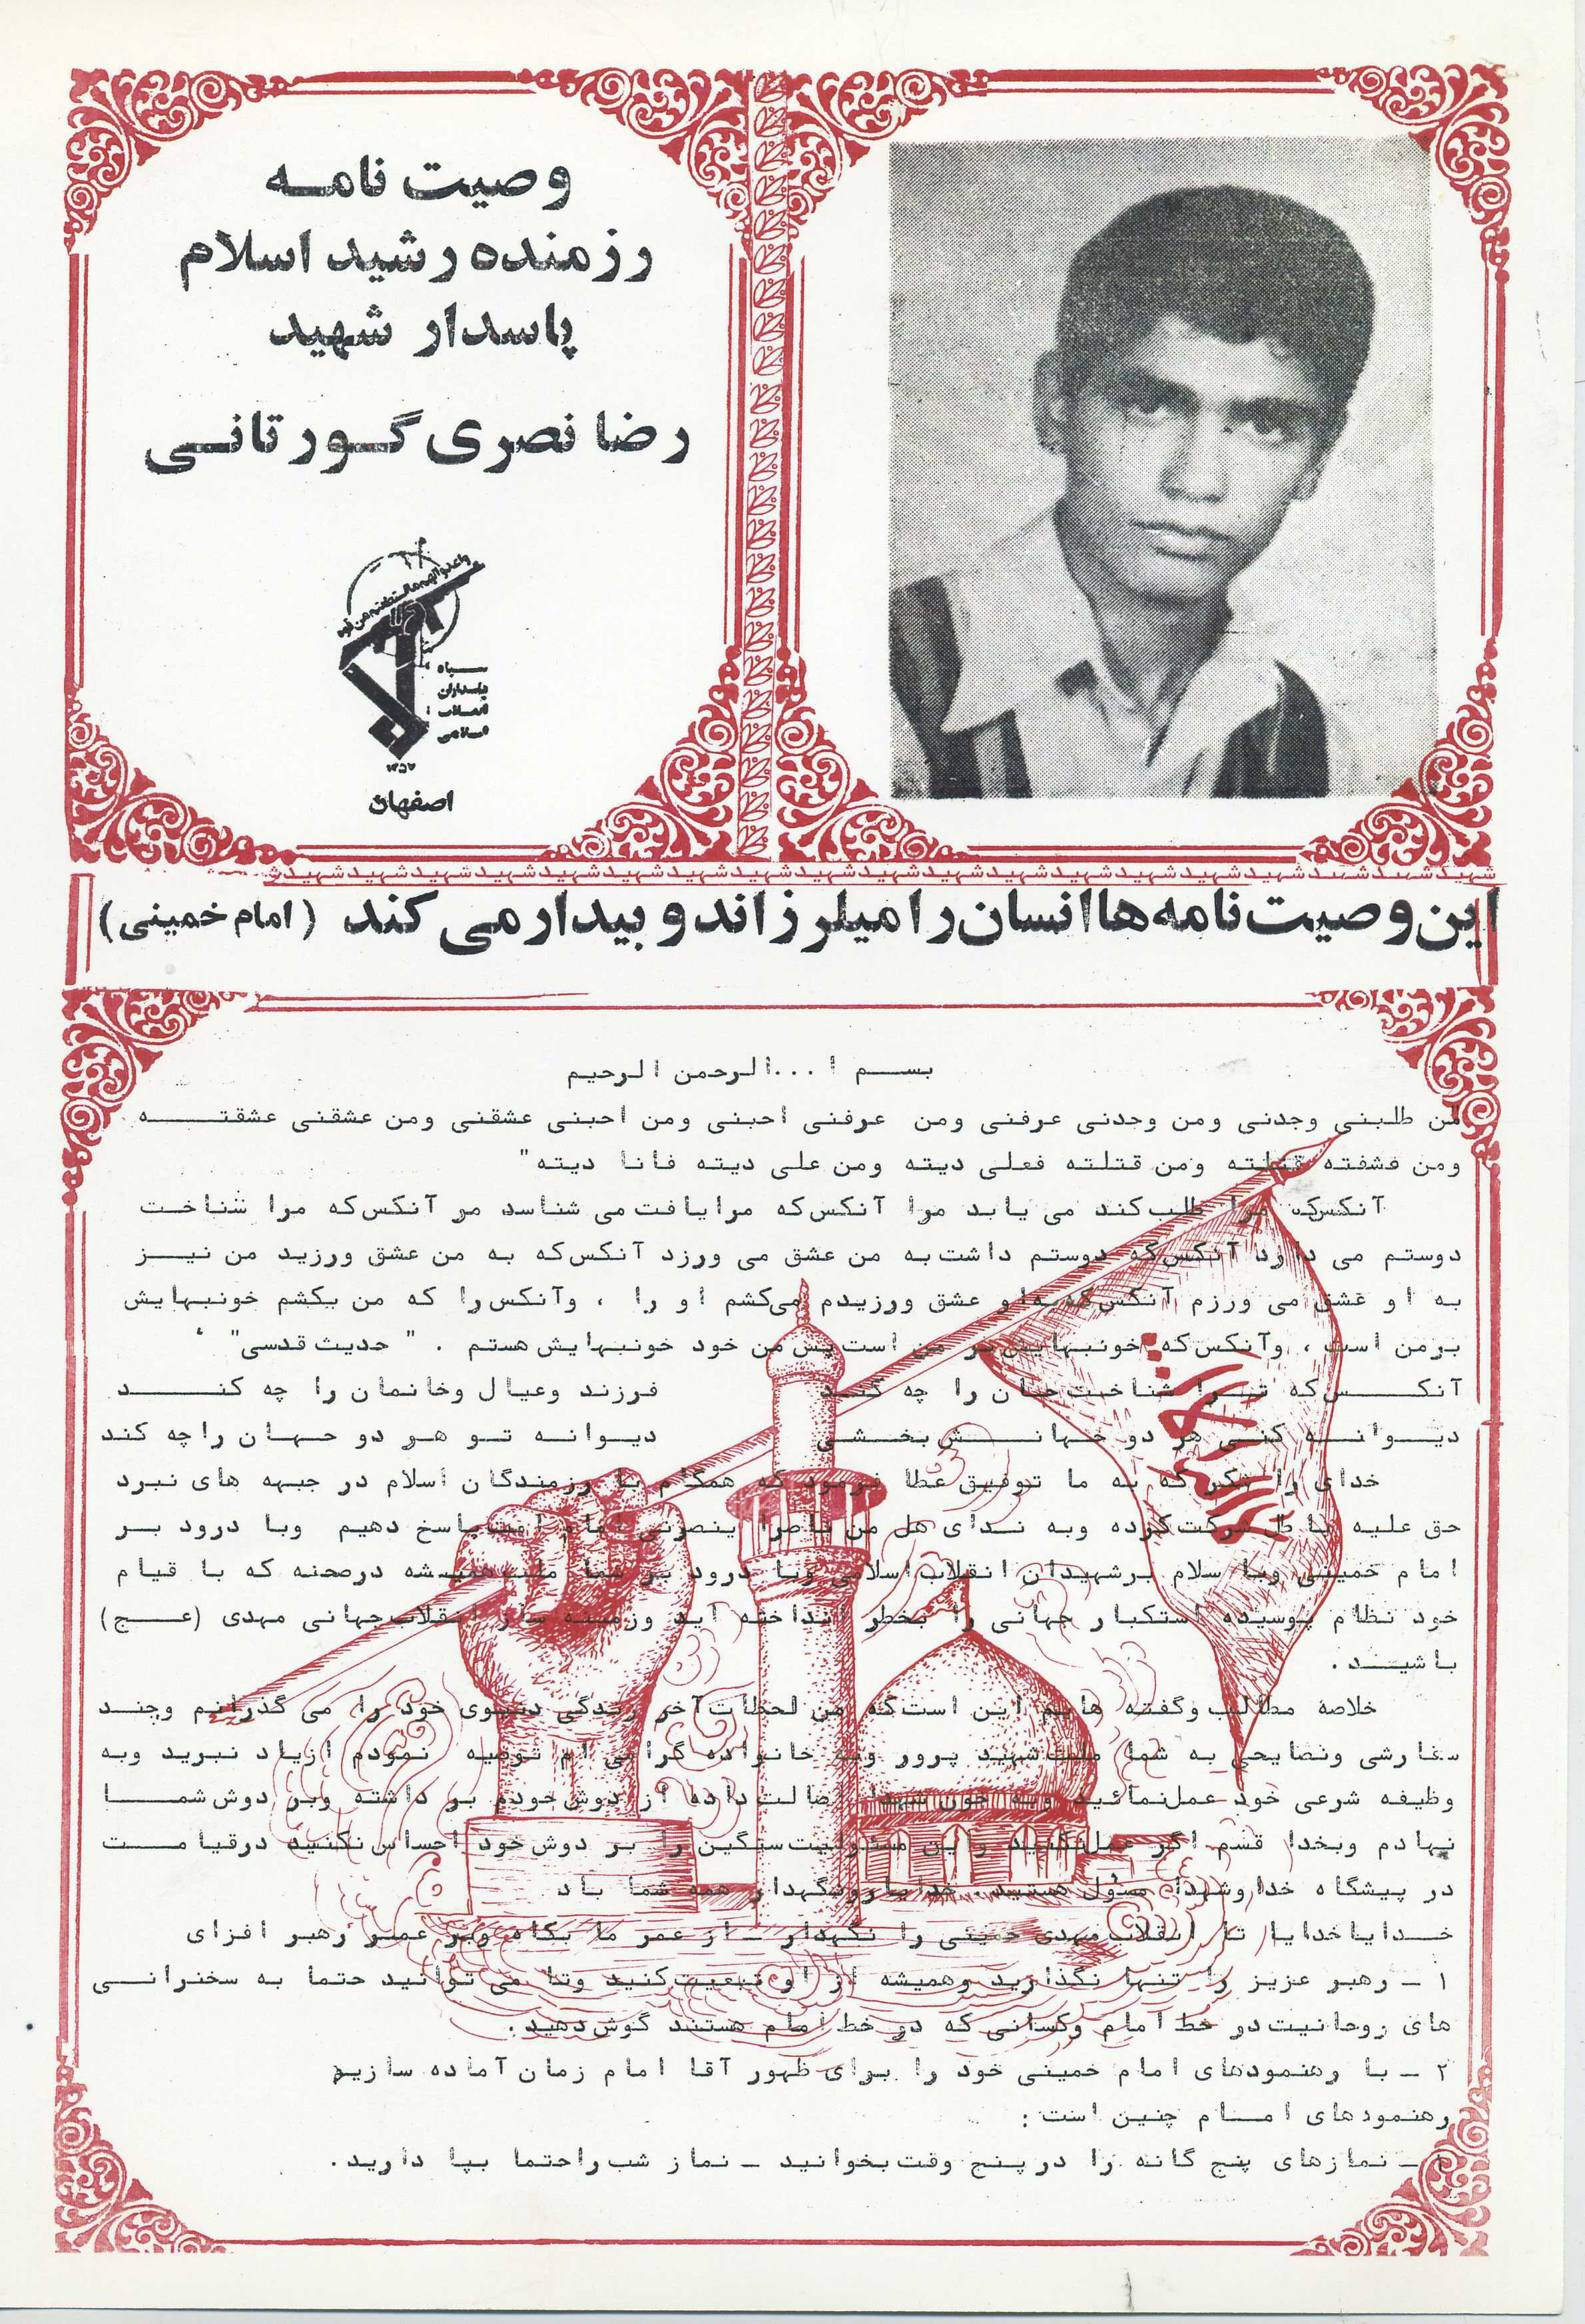 وصیت نامه
رزمنده رشید اسلام
پاسدار شهید
رضا نصری گورتانی
سپاه
پاسداران
انقلاب
اسلامی
اصفهان
شهید شهید شهید شهید شهید شهید شهید شهید شهید شهید شهید شهید شهید شهید شهید شهید شهید شهید شهید
این وصیت نامه ها انسان را میلرزاند و بیدار می کند (امام خمینی)
بسم ا...الرحمن الرحیم
من طلبنی وجدنی ومن وجدنی عرفنی ومن عرفنی احبنی ومن احبنی عشقنی ومن عشقنی عشقته
ومن قتلته ومن قتلته فعلی دیته ومن علی دیته فانا دیته"
آنکس که مرا طلب کند می یابد مرا آنکس که مرا یافت می شناسد مر آنکس که مرا شناخت
دوستم می دارد آنکس که دوستم داشت به من عشق می ورزد آنکس که به من عشق ورزید من نیز
به او عشق می ورزم آنکس که به او عشق ورزیدم می‌کشم او را ، وآنکس را که من بکشم خونبهایش
برمن است ، وآنکس که خونبهایش بر من است پس من خود خونبهایش هستم . " حدیث قدسی"
آنکس که ترا شناخت جان را چه کند فرزند وعیال وخانمان را چه کند
دیوانه کنی هر دو جهانش بخشی دیوانه تو هر دو جهان را چه کند
خدای را شکر که به ما توفیق عطا فرمود که همگام با رزمندگان اسلام در جبهه های نبرد
حق علیه باطل شرکت کرده وبه ندای هل من ناصرا ینصرنی امام امت پاسخ دهیم وبا درود بر
امام خمینی وبا سلام برشهیدان انقلاب اسلامی وبا درود بر شما ملت همیشه درصحنه که با قیام
خود نظام پوسیده استکبار جهانی را بخطر انداخته اید وزمینه ساز انقلاب جهانی مهدی (عج)
باشید .
خلاصه مطالب وگفته هایم این است که من لحظات آخر زندگی دنیوی خود را می گذرانم وچند
سفارشی ونصایحی به شما ملت شهید پرور وبه خانواده گرامی ام توصیه نمودم ازیاد نبرید وبه
وظیفه شرعی خود عمل نمائید وبه خون شهدا اصالت داده از دوش خودم بر داشته وبر دوش شما
نهادم وبخدا قسم اگر عمل نکنید واین مسئولیت سنگین را بر دوش خود احساس نکنید درقیامت
در پیشگاه خدا وشهدا مسئول هستید. خدا یارونگهدار همه شما باد
خدایا خدایا تا انقلاب مهدی خمینی را نگهدار ـ از عمر ما بکاه وبر عمر رهبر افزای
۱ ـ رهبر عزیز را تنها نگذارید وهمیشه از او تبعیت کنید وتا می توانید حتما به سخنرانی
های روحانیت در خط امام وکسانی که در خط امام هستند گوش دهید.
۲ ـ با رهنمودهای امام خمینی خود را برای ظهور آقا امام زمان آماده سازیم
رهنمودهای امام چنین است :
۱ ـ نمازهای پنج گانه را در پنج وقت بخوانید ـ نماز شب راحتما بپا دارید.